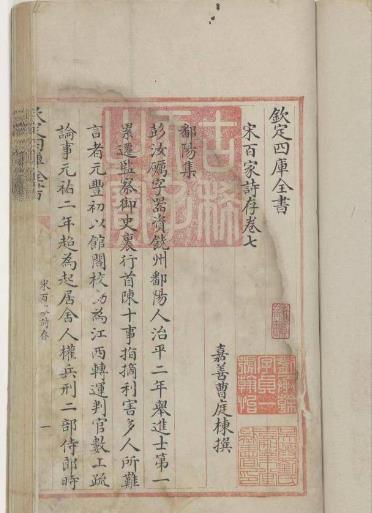 欽定四庫全書
宋百家詩存卷七
嘉善曹庭棟撰
鄱陽集
彭汝礪字器資饒州鄱陽人治平二年舉進士第一
累遷監察御史裏行首陳十事指摘利害多人所難
言者元豐初以館閣校勘為江西轉運判官數上疏
論事元祐二年起為起居舍人權兵刑二部侍郎時
宋百家詩存
一